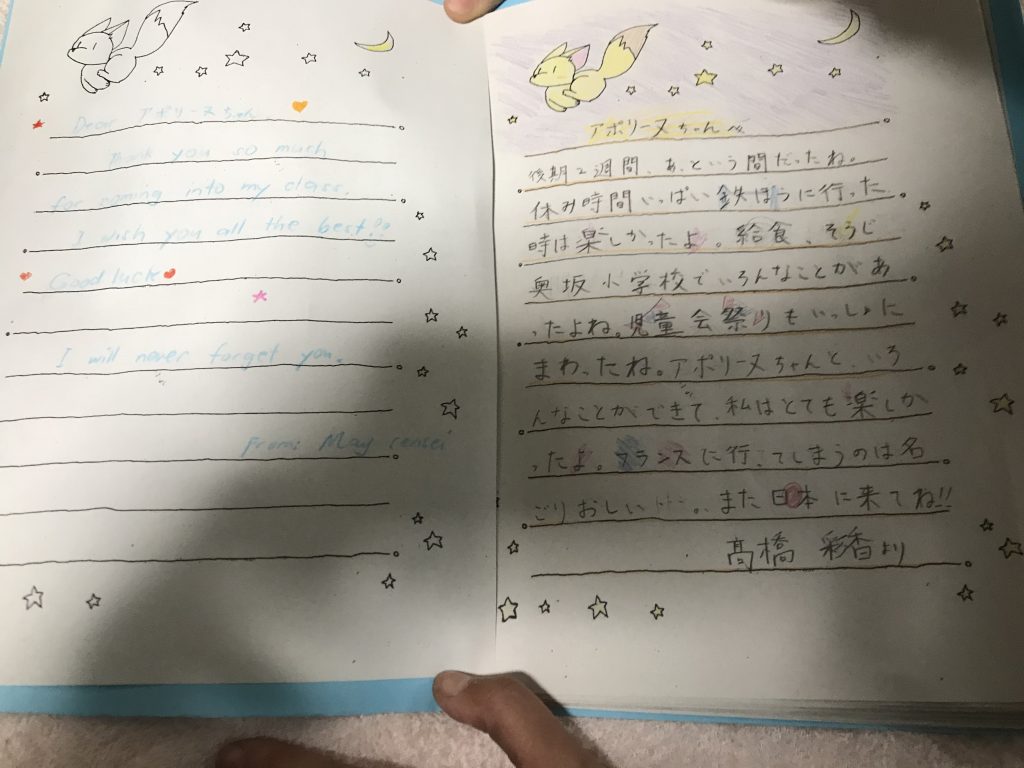 Dear アポリーヌちゃん
Thank you so much
for coming into my class.
I wish you all the best!!
Good luck
I will never forget you.
From: May sensei
アポリーヌちゃんへ
後期2週間、あっという間だったね。
休み時間いっぱい鉄ぼうに行った
時は楽しかったよ。給食、そうじ
奥坂小学校でいろんなことがあ
ったよね。児童会祭りもいっしょに
まわったね。アポリーヌちゃんと、いろ
んなことができて、私はとても楽しか
ったよ。フランスに行ってしまうのは名
ごりおしい…。また日本に来てね!!
髙橋 彩香より